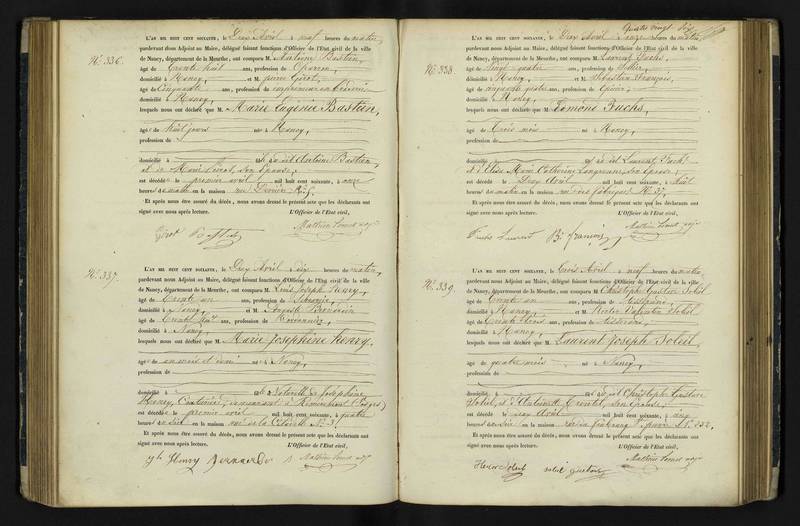 N° 336.
L'AN MIL HUIT CENT SOIXANTE, le Deux Avril à neuf heures du matin,
pardevant nous Adjoint au Maire, délégué faisant fonctions d'Officier de l'Etat civil de la ville
de Nancy, département de la Meurthe, ont comparu M. Antoine Bastien,
âgé de Trente huit ans, profession de
domicilié à Nancy, et M. pierre Girot,
âgé de Cinquante ans, profession de
domicilié à Nancy,
lesquels nous ont déclaré que M. Marie Eugénie Bastien,
âgé de huit jours né à Nancy,
profession de
domicilié à dit Antoine Bastien
et de Marie Girot, son Epouse,
est décédé le premier avril mil huit cent soixante, à onze
heures du matin en la maison rue
Et après nous être assuré du décès, nous avons dressé le présent acte que les déclarants ont
signé avec nous après lecture. L'Officier de l'Etat civil,
Girot
N° 337.
L'AN MIL HUIT CENT SOIXANTE, le Deux Avril à dix heures du matin,
pardevant nous Adjoint au Maire, délégué faisant fonctions d'Officier de l'Etat civil de la ville
de Nancy, département de la Meurthe, ont comparu M. Louis Joseph Henry,
âgé de Trente un ans, profession de
domicilié à Nancy, et M. Auguste
âgé de Trente ans, profession de Cordonnier,
domicilié à Nancy,
lesquels nous ont déclaré que M. Marie Josephine henry,
âgé de un mois et demi né à Nancy,
profession de
domicilié à naturelle de Joséphine
Henry, Couturière, demeurant à Remiremont (Vosges)
est décédé le premier avril mil huit cent soixante, à quatre
heures du soir en la maison rue de la Citadelle N° 31
Et après nous être assuré du décès, nous avons dressé le présent acte que les déclarants ont
signé avec nous après lecture. L'Officier de l'Etat civil,
Henry
Quatre vingt dix
N° 338.
L'AN MIL HUIT CENT SOIXANTE, le Deux Avril à onze heures du matin,
pardevant nous Adjoint au Maire, délégué faisant fonctions d'Officier de l'Etat civil de la ville
de Nancy, département de la Meurthe, ont comparu M. Laurent Fuchs,
âgé de Vingt quatre ans, profession de Sellier,
domicilié à Nancy, et M. Sébastien François,
âgé de Cinquante quatre ans, profession de
domicilié à Nancy,
lesquels nous ont déclaré que M. Edmond Fuchs,
âgé de Trois mois né à Nancy,
profession de
domicilié à dit Laurent Fuchs
et d'Elise Marie Catherine son Epouse,
est décédé le Deux Avril mil huit cent soixante, à Huit
heures du matin en la maison rue des fabriques N° 37,
Et après nous être assuré du décès, nous avons dressé le présent acte que les déclarants ont
signé avec nous après lecture. L'Officier de l'Etat civil,
Fuchs Laurent françois
N° 339.
L'AN MIL HUIT CENT SOIXANTE, le Trois Avril à neuf heures du matin,
pardevant nous Adjoint au Maire, délégué faisant fonctions d'Officier de l'Etat civil de la ville
de Nancy, département de la Meurthe, ont comparu M. Christophe Gustave Soleil
âgé de Trente un ans, profession de
domicilié à Nancy, et M. Valentin Soleil
âgé de Trente trois ans, profession de
domicilié à Nancy,
lesquels nous ont déclaré que M. Laurent Joseph Soleil,
âgé de quatre mois né à Nancy,
profession de
domicilié à dit Christophe Gustave
Soleil, et d'Antoinette son Epouse,
est décédé le deux Avril mil huit cent soixante, à dix
heures du soir en la maison
Et après nous être assuré du décès, nous avons dressé le présent acte que les déclarants ont
signé avec nous après lecture. L'Officier de l'Etat civil,
soleil gustave